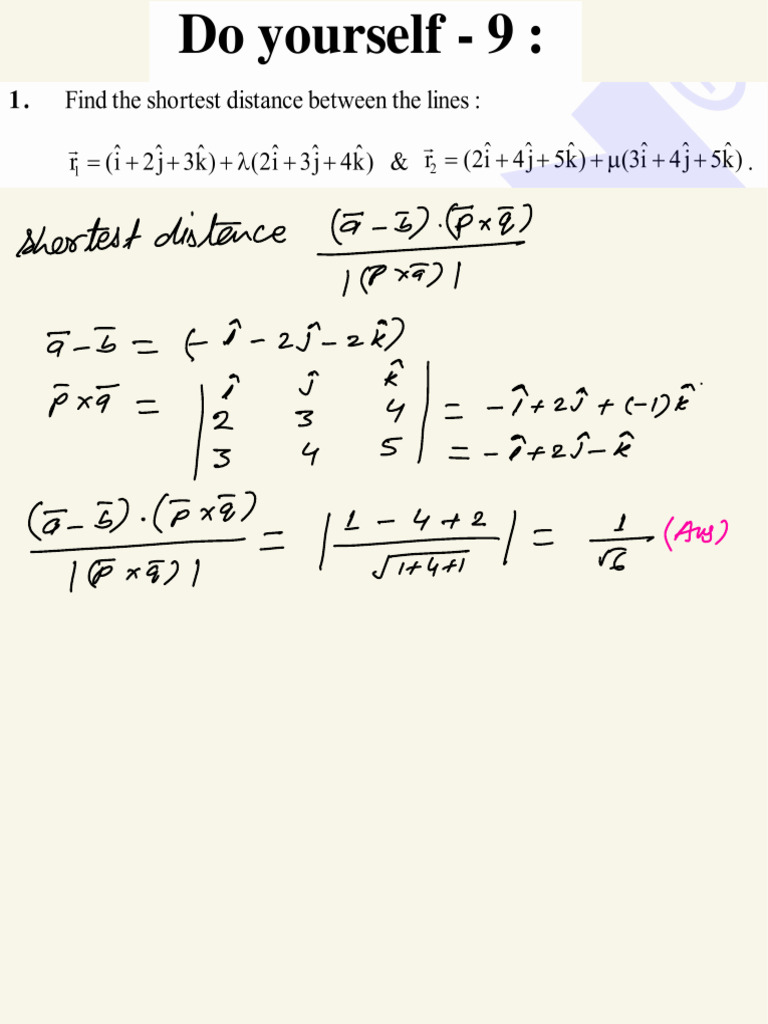 Do yourself - 9 :
1. Find the shortest distance between the lines :
r⃗₁ = (î + 2ĵ + 3k̂) + λ(2î + 3ĵ + 4k̂) & r⃗₂ = (2î + 4ĵ + 5k̂) + μ(3î + 4ĵ + 5k̂) .
shortest distence (a̅ – b̅) · (p̅ × q̅) / |(p × q̅)|
a̅ – b̅ = (– î – 2ĵ – 2k̂)
p̅ × q̅ = | î ĵ k̂ |
| 2 3 4 | = – î + 2ĵ + (-1)k̂
| 3 4 5 | = – î + 2ĵ – k̂
(a̅ – b̅) · (p̅ × q̅) / |(p̅ × q̅)| = | 1 – 4 + 2 / √1+4+1 | = 1 / √6 (Ans)